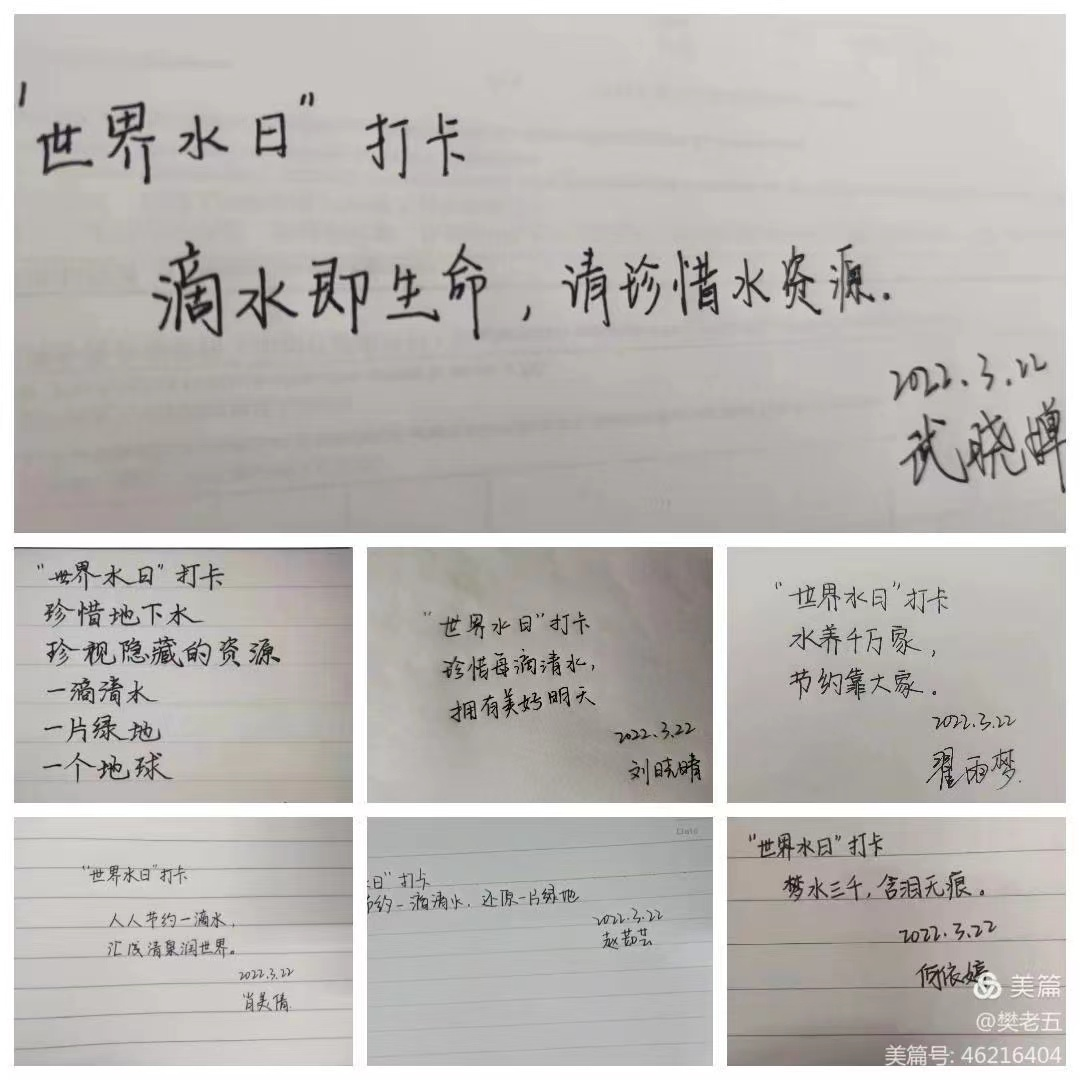 "世界水日"打卡
滴水即生命，请珍惜水资源.
2022.3.22
武晓婵
"世界水日"打卡
珍惜地下水
珍视隐藏的资源
一滴清水
一片绿地
一个地球
"世界水日"打卡
珍惜每滴清水,
拥有美好明天
2022.3.22
刘晓晴
"世界水日"打卡
水养千万家,
节约靠大家。
2022.3.22
翟雨梦.
"世界水日"打卡
人人节约一滴水,
汇成清泉润世界。
2022.3.22
肖美倩
水日"打卡
节约一滴滴水，还原一片绿地
2022.3.22
赵茹芸
"世界水日"打卡
梦水三千,含泪无痕。
2022.3.22
何依婷
美篇
@樊老五
美篇号: 46216404